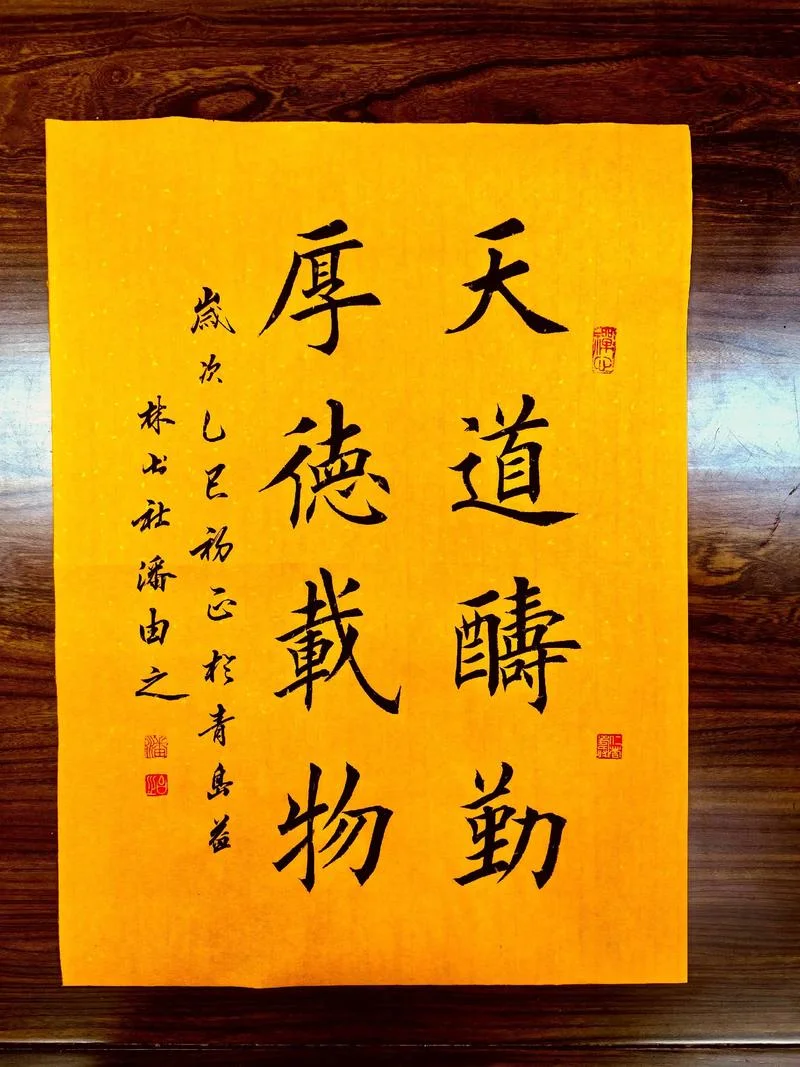 天道酬勤
厚德載物
歲次乙巳初正於青島益
林书社潘由之